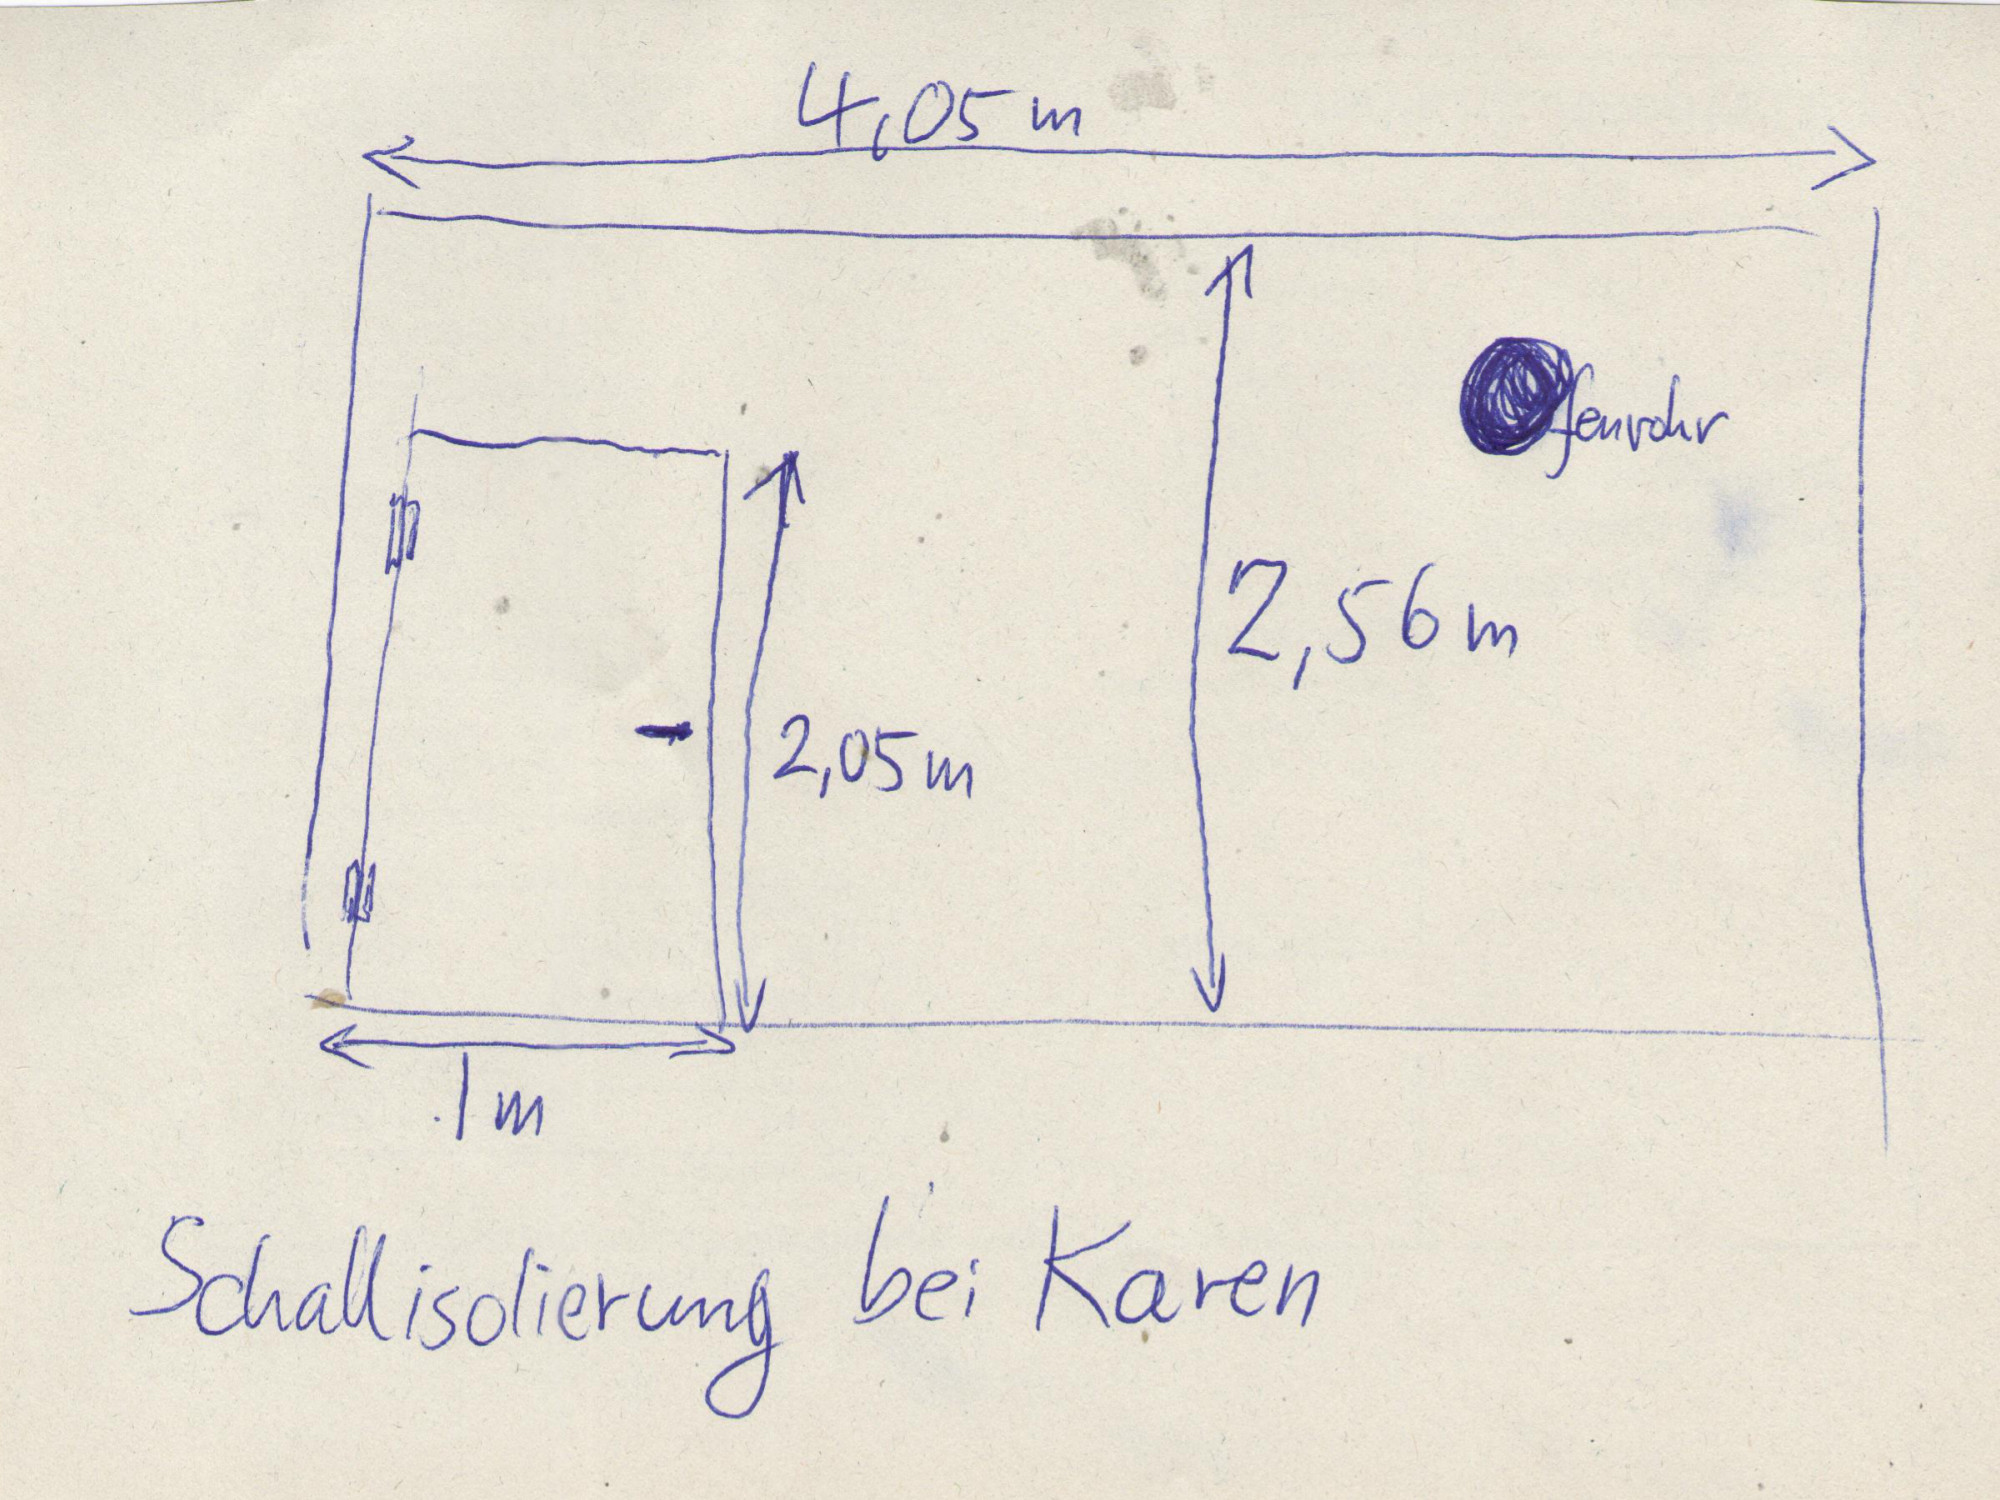 4,05 m
Ofenrohr
2,56 m
2,05 m
1 m
Schallisolierung bei Karen